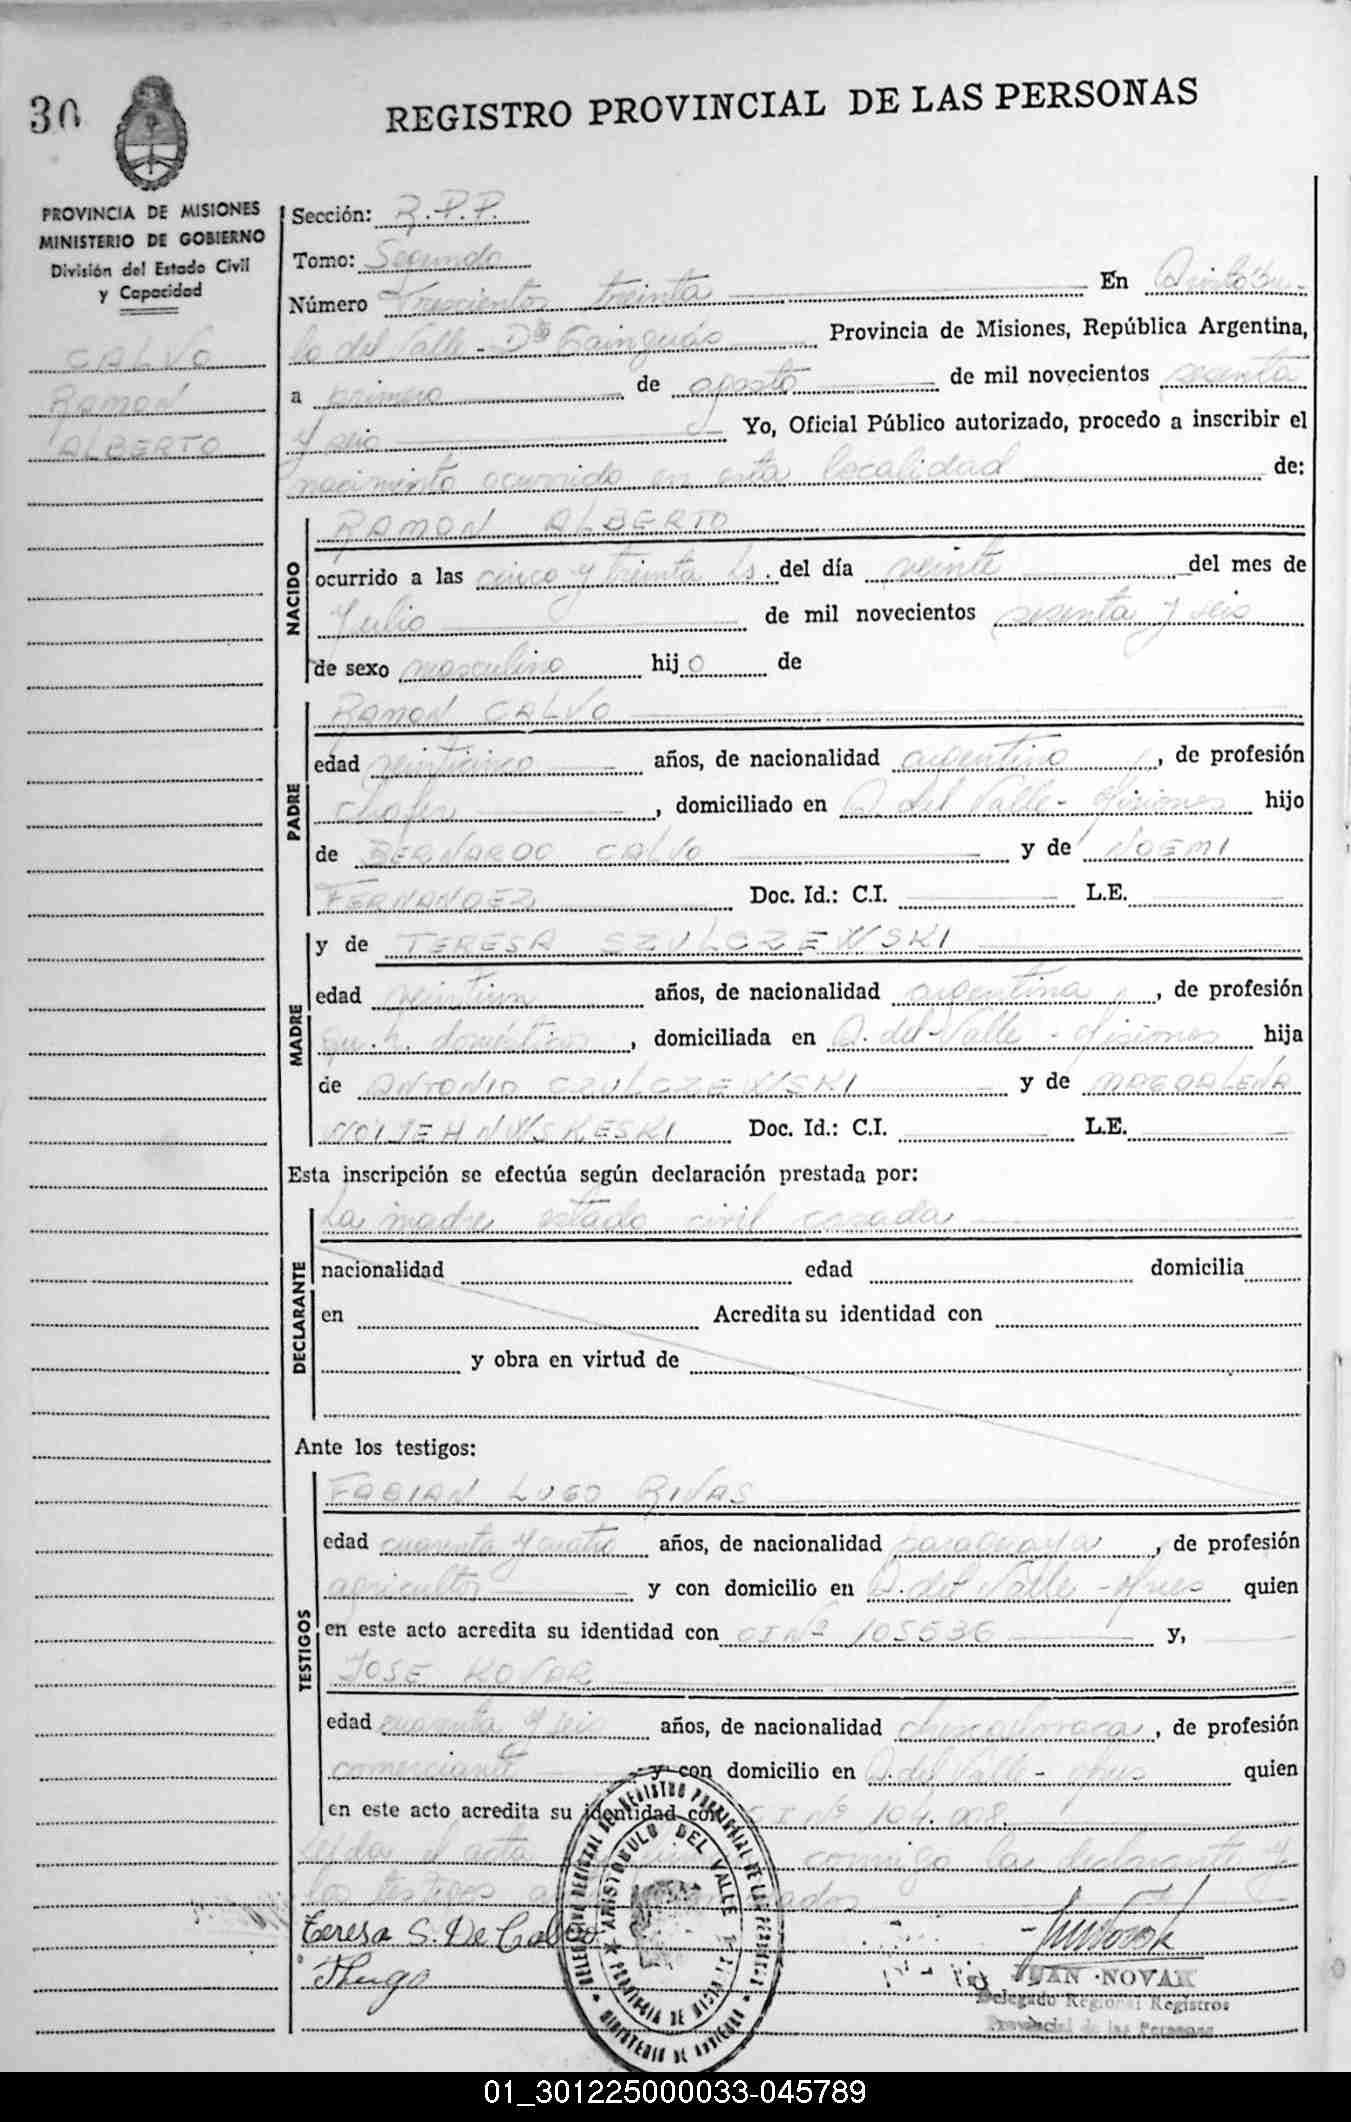 30
REGISTRO PROVINCIAL DE LAS PERSONAS
PROVINCIA DE MISIONES
MINISTERIO DE GOBIERNO
División del Estado Civil
y Capacidad
CALVO
RAMON
ALBERTO
Sección: R.P.P.
Tomo: Segundo
Número Trescientos treinta En Aristóbu-
lo del Valle - Dto Cainguás Provincia de Misiones, República Argentina,
a primero de agosto de mil novecientos sesenta
y seis Yo, Oficial Público autorizado, procedo a inscribir el
nacimiento ocurrido en esta localidad de:
NACIDO
RAMON ALBERTO
ocurrido a las cinco y treinta hs. del día veinte del mes de
Julio de mil novecientos sesenta y seis
de sexo masculino hijo de
PADRE
RAMON CALVO
edad veinticinco años, de nacionalidad argentino, de profesión
chofer, domiciliado en A. del Valle - Misiones hijo
de BERNARDO CALVO y de NOEMI
FERNANDEZ Doc. Id.: C.I. L.E.
MADRE
y de TERESA SZULCZEWSKI
edad veintiun años, de nacionalidad argentina, de profesión
qu. h. domésticos, domiciliada en A. del Valle - Misiones hija
de ANTONIO SZULCZEWSKI y de MAGDALENA
Doc. Id.: C.I. L.E.
Esta inscripción se efectúa según declaración prestada por:
DECLARANTE
La madre estado civil casada
nacionalidad edad domicilia
en Acredita su identidad con
y obra en virtud de
Ante los testigos:
TESTIGOS
FABIAN LUGO RIVAS
edad cuarenta y cuatro años, de nacionalidad paraguaya, de profesión
agricultor y con domicilio en A. del Valle - Mnes quien
en este acto acredita su identidad con CI Nº 105636 y,
JOSE KOVAR
edad cuarenta y seis años, de nacionalidad checoslovaca, de profesión
comerciante y con domicilio en A. del Valle - Mnes quien
en este acto acredita su identidad con CI Nº 104.008.
el acta conmigo la declarante y
los testigos
Teresa S. De Calvo
DELEGACION REGIONAL DEL REGISTRO PROVINCIAL DE LAS PERSONAS
ARISTOBULO DEL VALLE
PROVINCIA DE MISIONES
MINISTERIO DE GOBIERNO
JUAN NOVAK
Delegado Regional Registros
Provincial de las Personas
01_301225000033-045789